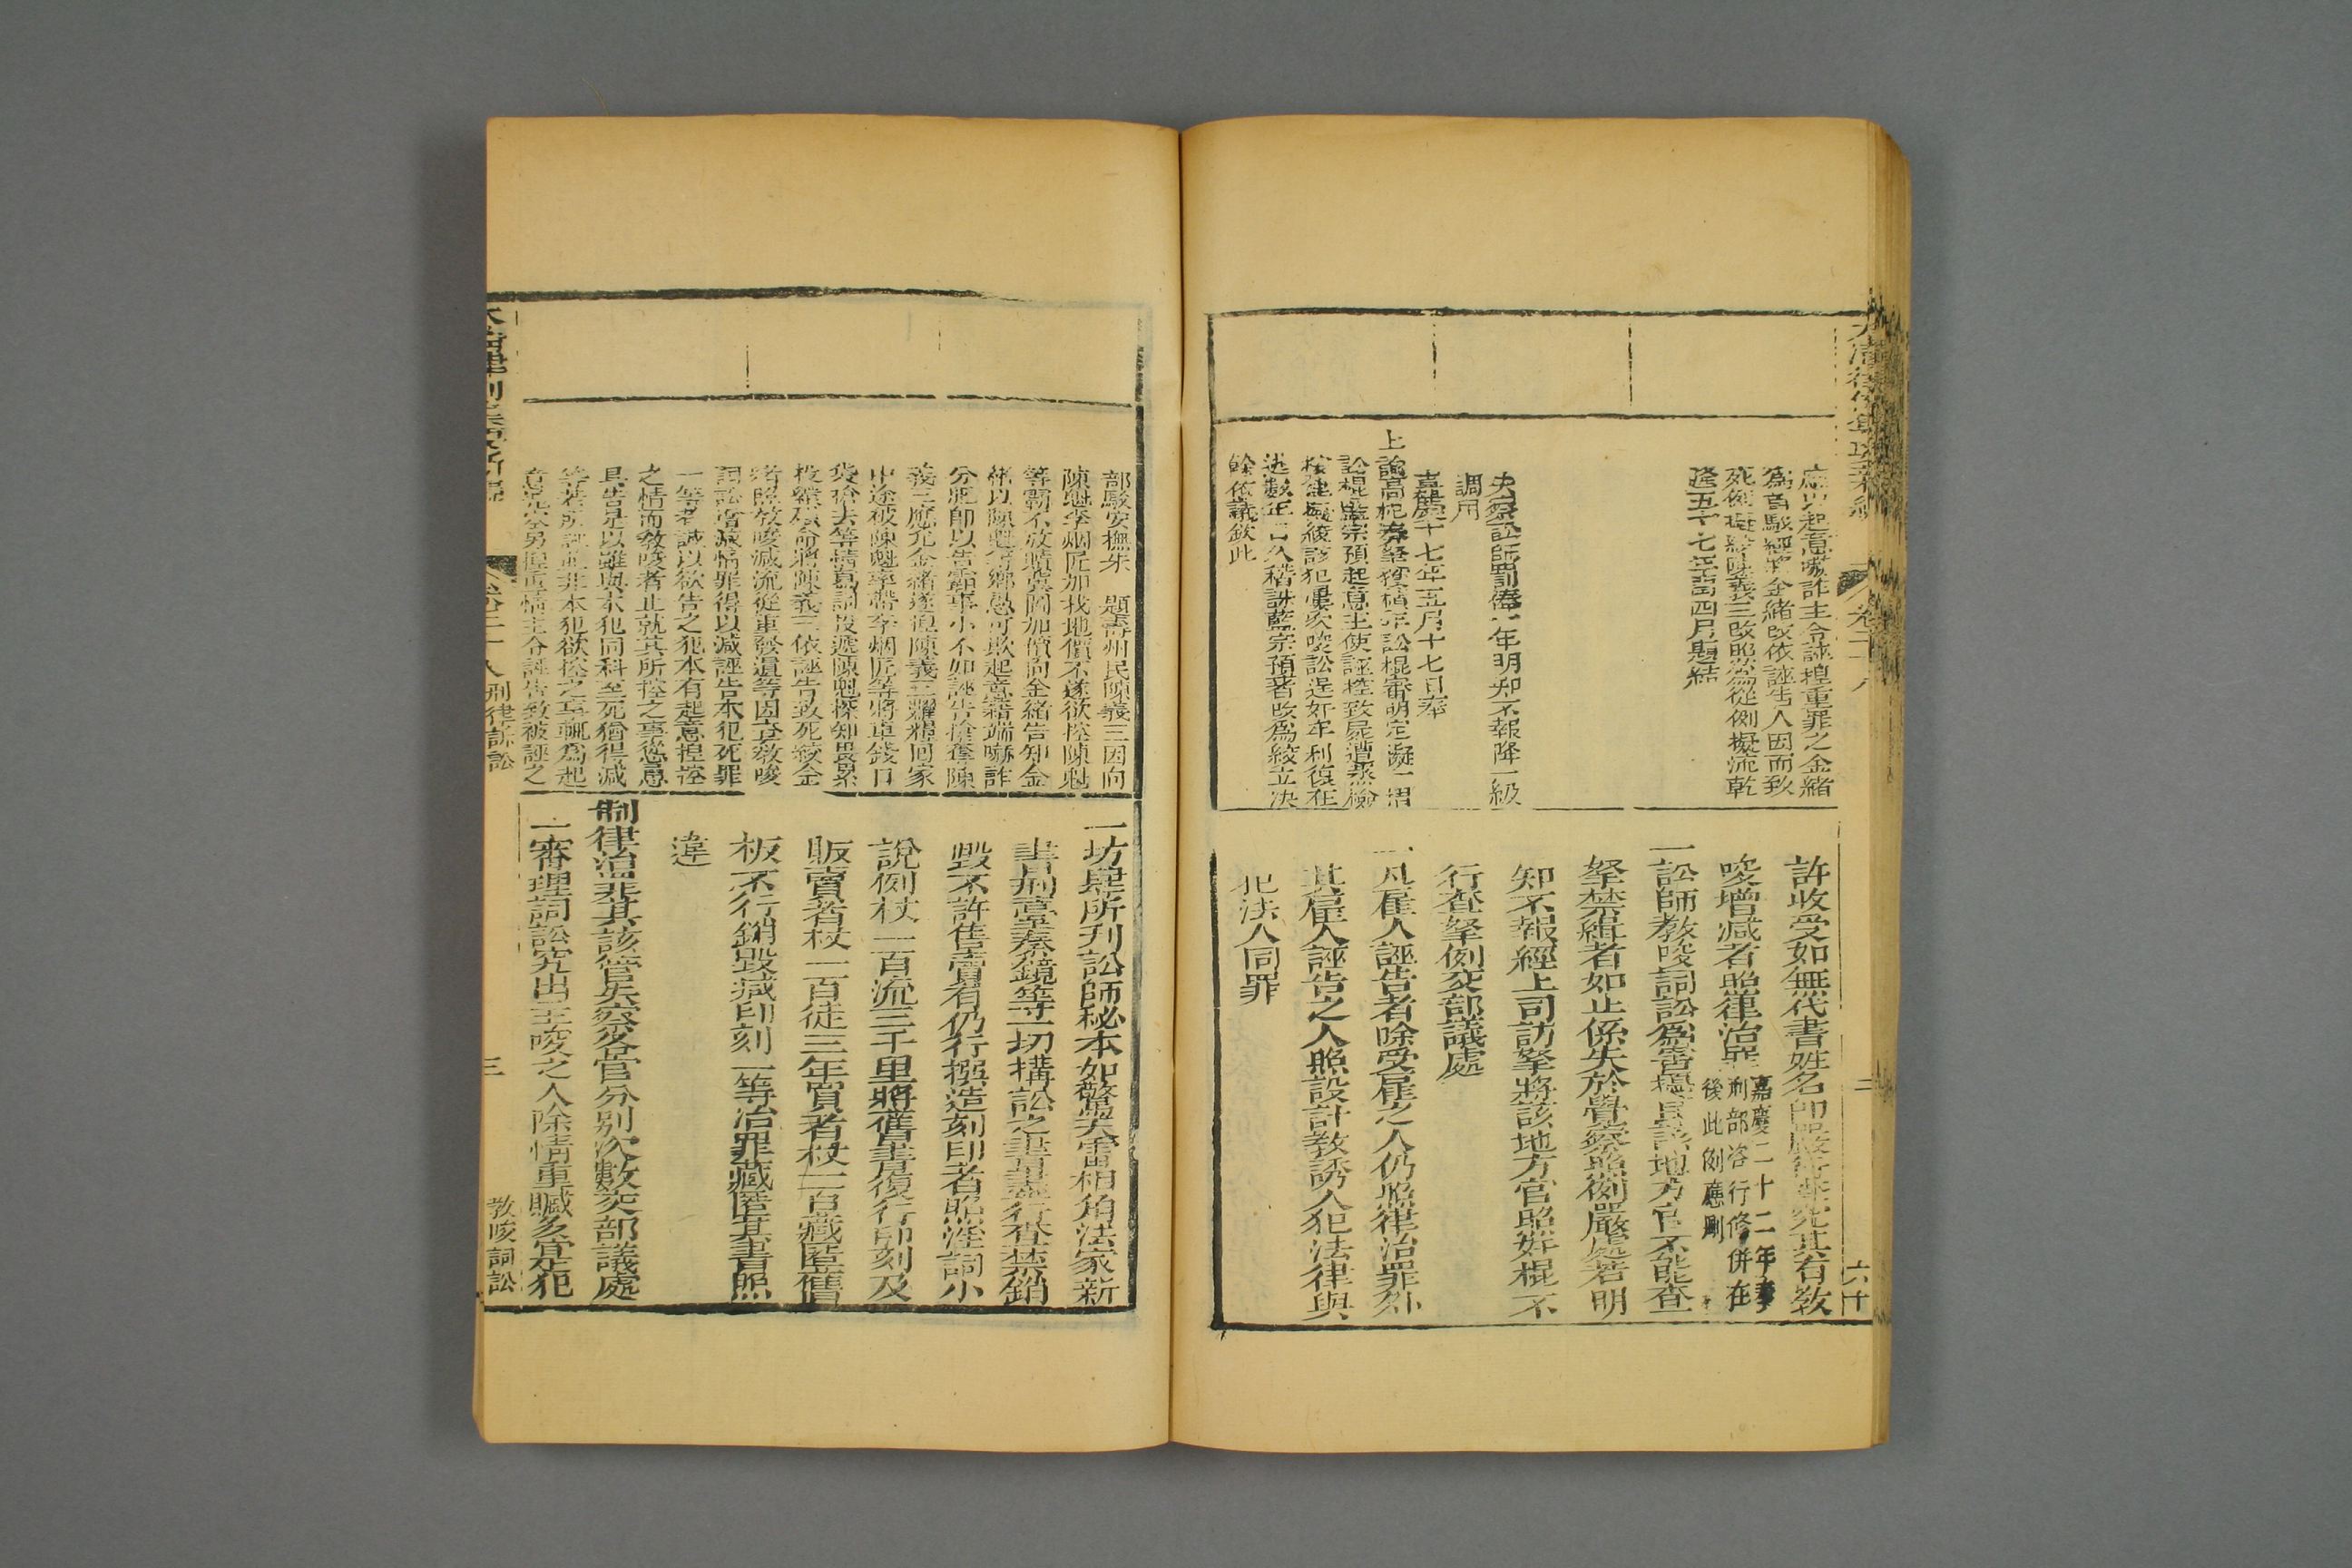 應以起意嚇詐主令誣揑重罪之金緒
為首駁經將金緒改依誣告人因而致
死例擬絞陳義三改照為從例擬流乾
隆五十七年閏四月題結
失察訟師罰俸一年明知不報降一級
調用
嘉慶十七年五月十七日奉
上諭高杞奏
訟棍藍宗預起意主使誣控致屍遭蒸檢
擬絞該犯屢次唆訟逞奸牟利復在
久稽誅藍宗預著改為絞立決
餘依議欽此
許收受如無代書姓名即嚴行查究其有教
唆增減者照律治罪
嘉慶二十二年奉
刑部咨行修併在
後此例應刪
一訟師教唆詞訟為害擾民該地方官不能查
拏禁緝者如止係失於覺察照例嚴處若明
知不報經上司訪拏將該地方官照奸棍不
行查拏例交部議處
一凡雇人誣告者除受雇之人仍照律治罪外
其雇人誣告之人照設計教誘人犯法律與
犯法人同罪
部駁安撫朱 題壽州民陳義三因向
陳魁李烟匠加找地價不遂欲控陳魁
等霸不放贖冀圖加價向金緒告知金
緒以陳魁等鄉愚可欺起意藉端嚇詐
分肥即以告霸事小不如誣告搶奪陳
義三應允金緒遂揑陳義三糶糧回家
中途被陳魁率帶李烟匠等將車錢口
袋搶去等情寫詞投遞陳魁探知畏累
投繯殞命將陳義三依誣告致死絞金
緒照教唆減流從重發遣等因查教唆
詞訟增減情罪得以減誣告本犯死罪
一等者誠以欲告之犯本有起意揑控
之情而教唆者止就其所控之事慫慂
具告是以雖與本犯同科至死猶得減
等若所誣並非本犯欲控之事輒為起
意兇念另揑重情主令誣告致被誣之
一坊肆所刋訟師秘本如驚天雷相角法家新
書刑臺秦鏡等一切搆訟之書盡行查禁銷
毁不許售賣有仍行撰造刻印者照淫詞小
說例杖一百流三千里將舊書復行印刻及
販賣者杖一百徒三年買者杖一百藏匿舊
板不行銷毁減印刻一等治罪藏匿其書照
違
制律治罪其該管失察各官分別次數交部議處
一審理詞訟究出主唆之人除情重贓多實犯
卷二十八 刑律訴訟
三
教唆詞訟